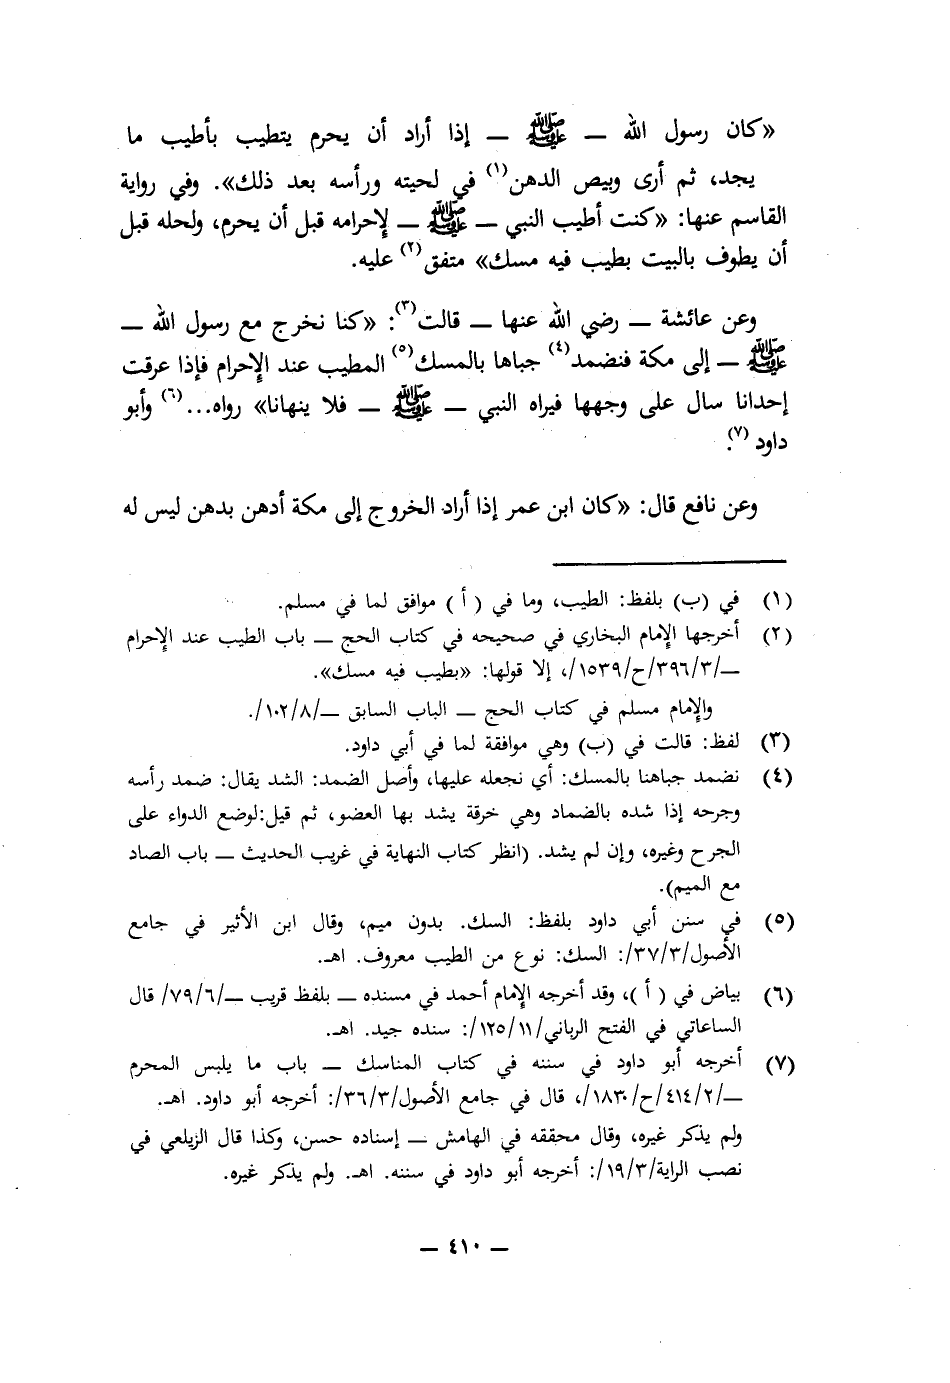 «كان رسول الله — ﷺ — إذا أراد أن يحرم يتطيب بأطيب ما
يجد، ثم أرى وبيص الدهن(١) في لحيته ورأسه بعد ذلك». وفي رواية
القاسم عنها: «كنت أطيب النبي — ﷺ — لإحرامه قبل أن يحرم، ولحله قبل
أن يطوف بالبيت بطيب فيه مسك» متفق(٢) عليه.
وعن عائشة — رضي الله عنها — قالت(٣): «كنا نخرج مع رسول الله —
ﷺ — إلى مكة فنضمد(٤) جباها بالمسك(٥) المطيب عند الإحرام فإذا عرقت
إحدانا سال على وجهها فيراه النبي — ﷺ — فلا ينهانا» رواه...(٦) وأبو
داود(٧).
وعن نافع قال: «كان ابن عمر إذا أراد الخروج إلى مكة أدهن بدهن ليس له
(١) في (ب) بلفظ: الطيب، وما في ( أ ) موافق لما في مسلم.
(٢) أخرجها الإمام البخاري في صحيحه في كتاب الحج — باب الطيب عند الإحرام
—/٣٩٦/٣/ح/١٥٣٩/، إلا قولها: «بطيب فيه مسك».
والإمام مسلم في كتاب الحج — الباب السابق —/١٠٢/٨/.
(٣) لفظ: قالت في (ب) وهي موافقة لما في أبي داود.
(٤) نضمد جباهنا بالمسك: أي نجعله عليها، وأصل الضمد: الشد يقال: ضمد رأسه
وجرحه إذا شده بالضماد وهي خرقة يشد بها العضو، ثم قيل:لوضع الدواء على
الجرح وغيره، وإن لم يشد. (انظر كتاب النهاية في غريب الحديث — باب الصاد
مع الميم).
(٥) في سنن أبي داود بلفظ: السك. بدون ميم، وقال ابن الأثير في جامع
الأصول/٣٧/٣/: السك: نوع من الطيب معروف. اهـ.
(٦) بياض في ( أ )، وقد أخرجه الإمام أحمد في مسنده — بلفظ قريب —/٧٩/٦/ قال
الساعاتي في الفتح الرباني/١٢٥/١١/: سنده جيد. اهـ.
(٧) أخرجه أبو داود في سننه في كتاب المناسك — باب ما يلبس المحرم
—/٤١٤/٢/ح/١٨٣٠/، قال في جامع الأصول/٣٦/٣/: أخرجه أبو داود. اهـ.
ولم يذكر غيره، وقال محققه في الهامش — إسناده حسن، وكذا قال الزيلعي في
نصب الراية/١٩/٣/: أخرجه أبو داود في سننه. اهـ. ولم يذكر غيره.
— ٤١٠ —